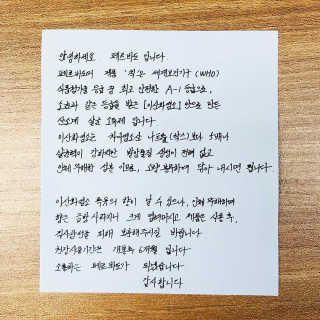 안녕하세요 페르바도 입니다
페르바도의 제품 '착'은 세계보건기구 (WHO)
식품첨가물 등급 중 최고 안전한 A-1 등급으로,
오존과 같은 등급을 받은 [이산화염소] 만으로 만든
산소계 살균 소독제 입니다.
이산화염소는 차아염소산 나트륨 (락스) 보다 5배나
살균력이 강하지만 발암물질 생성이 전혀 없고
인체 무해한 성분 이므로, 소량 분무하여 닦아 내시면 됩니다.
이산화염소 특유의 향이 날 수 있으나, 인체 무해하며
향은 금방 사라지니 크게 염려마시고 제품은 사용 후,
직사광선을 피해 보관해주시길 바랍니다.
권장사용기간은 개봉후 6개월 입니다
소통하는 페르바도가 되겠습니다
감사합니다